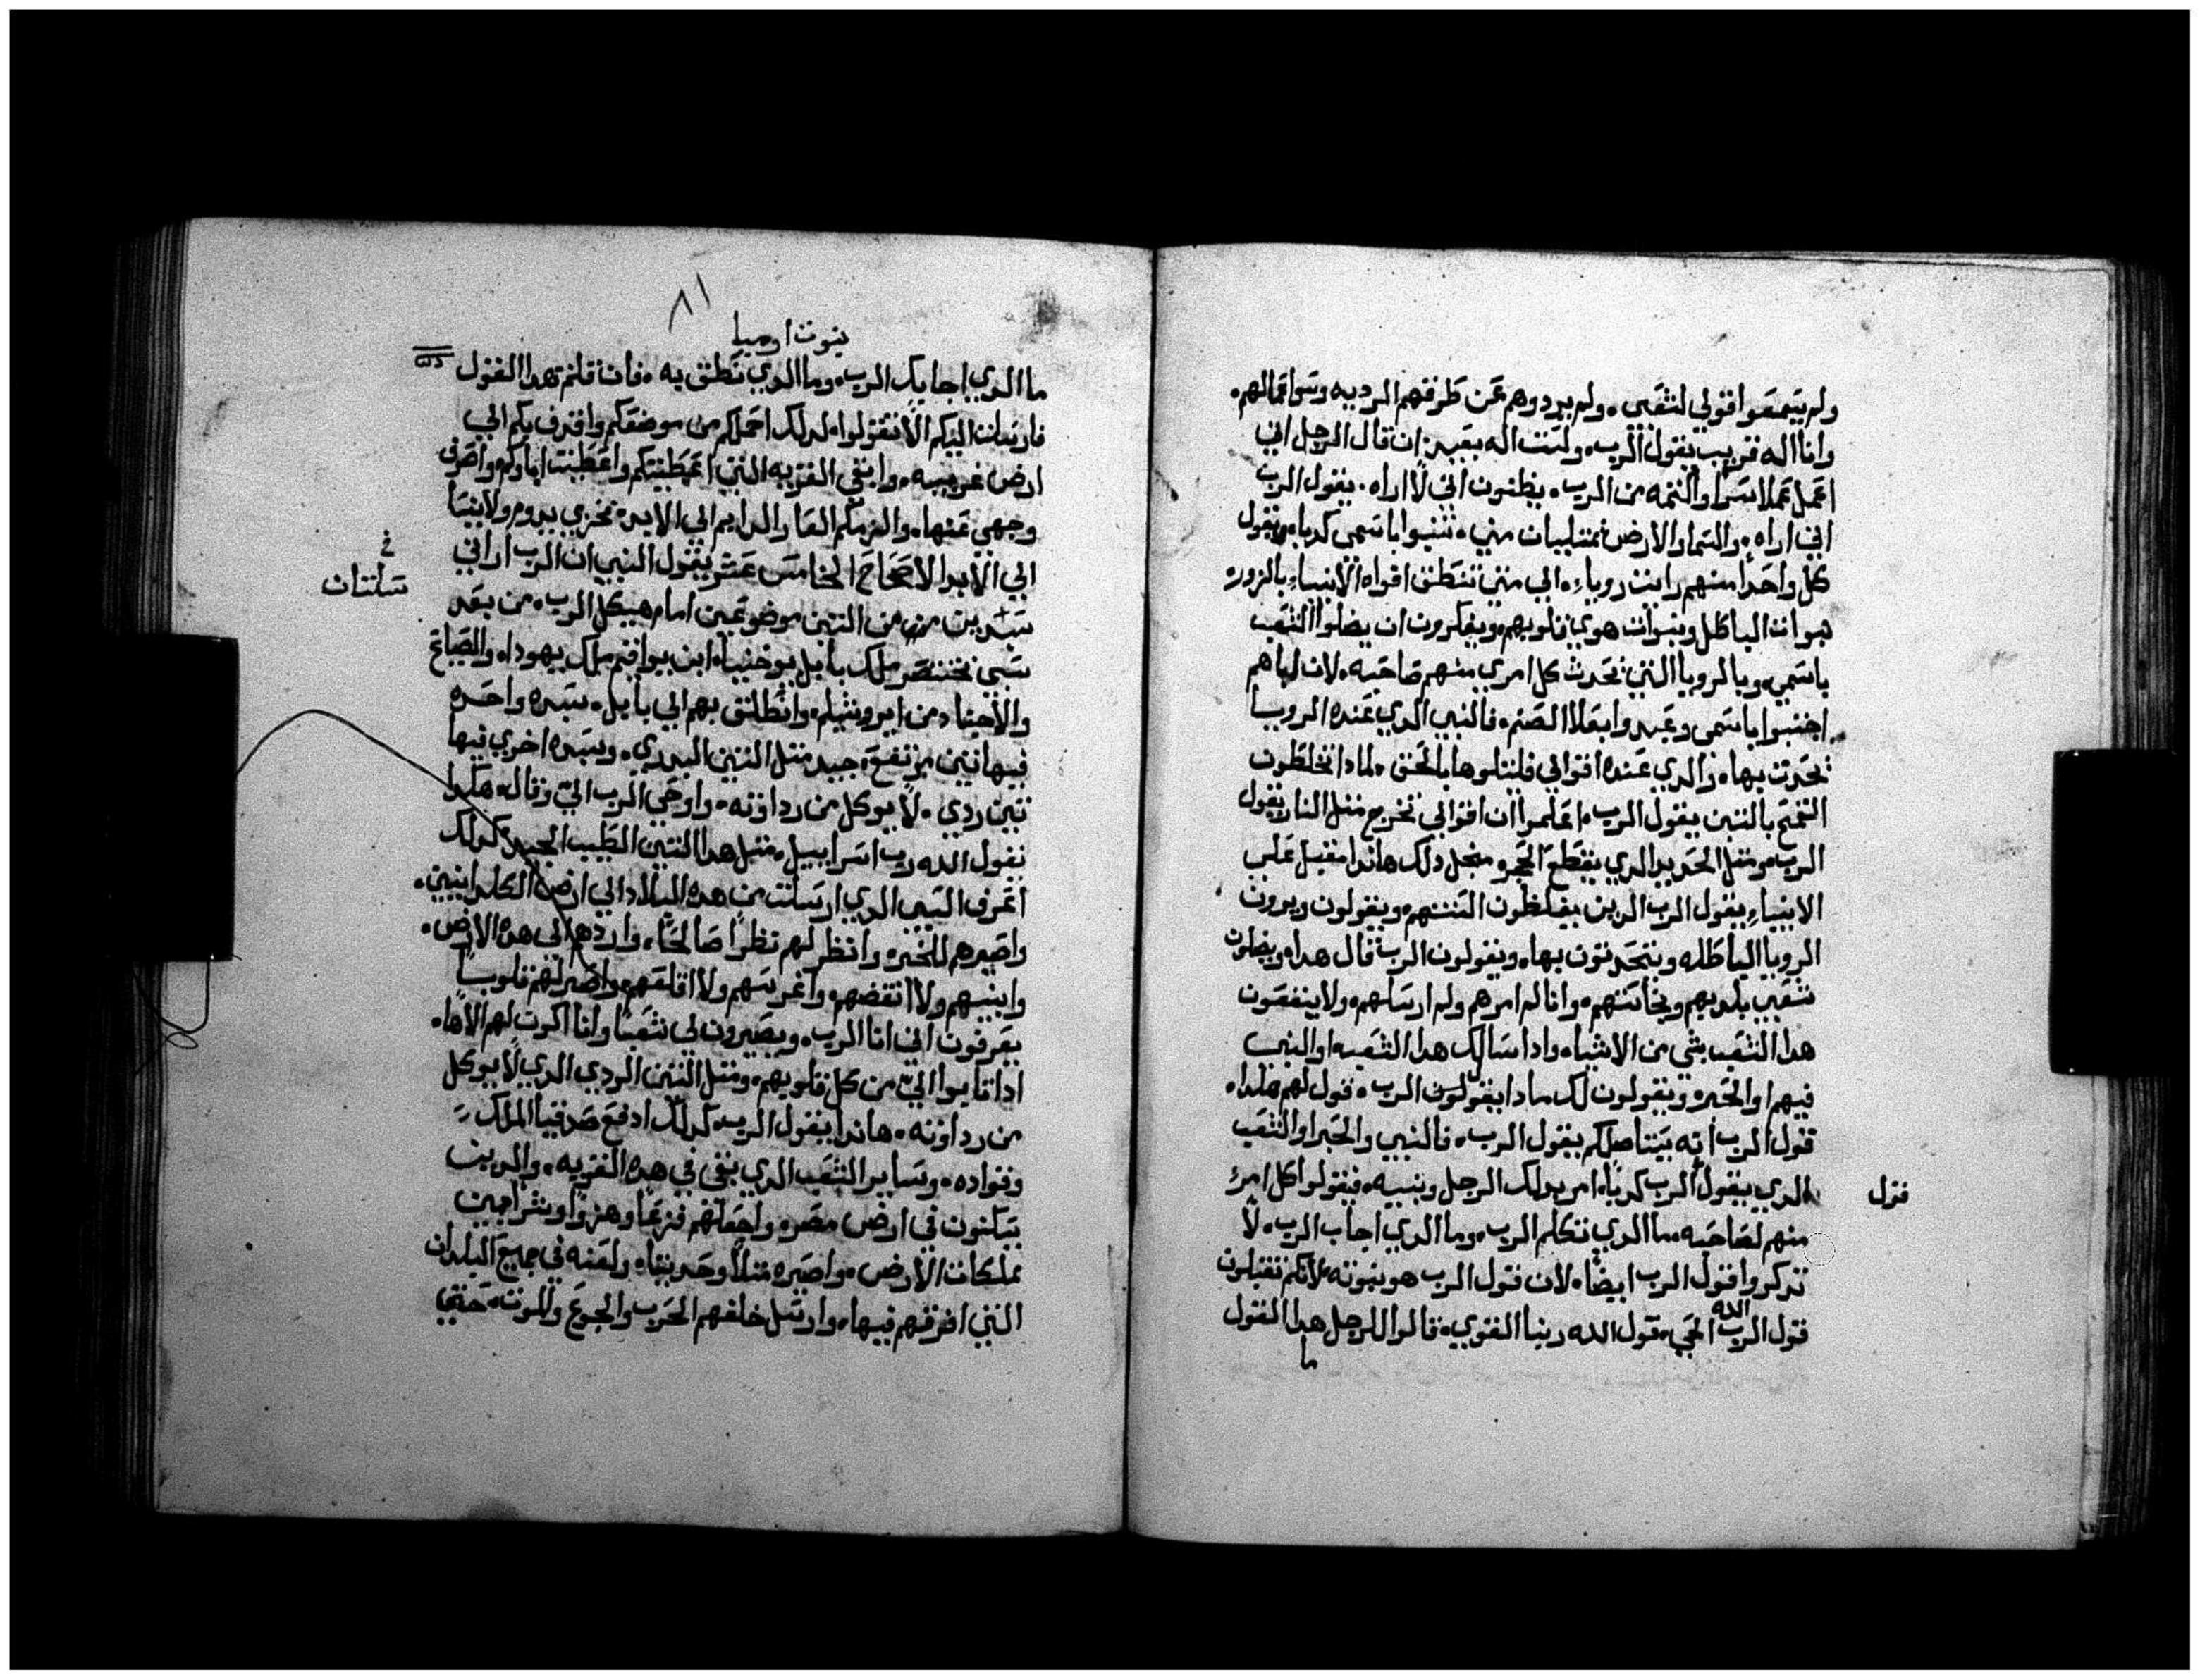 ولم يسمعوا قولي لشعبي. ولم يردوهم عن طرقهم الرديه وسوا اعمالهم.
وانا اله قريب يقول الرب. ولست اله بعيد. ان قال الرجل اني
اعمل عملا سرا واكتمه من الرب. يظنون اني لا اراه. يقول الرب
اني اراه. والسما والارض ممتلييات مني. تنبوا باسمي كدبا. ويقول
كل واحدا منهم رايت روياء. الي متي تنطق افواه الانبياء بالزور.
نبوات الباطل ونبوات هوي قلوبهم. ويفكرون ان يضلوا الشعب
باسمي. وبالرويا التي تحدث كل امري منهم صاحبه. لان اباهم
اجتنبوا باسمي وعبدوا بعلا الصنم. فالنبي الدي عنده الرويا
تحدت بها. والدي عنده اقوالي فليتلوها بالحق. لمادا تخلطون
القمح بالتبن يقول الرب. اعلموا ان اقوالي تخرج متل النار يقول
الرب. ومتل الحديد الدي يقطع الحجر. ومنجل دلك هاندا مقبل علي
الانبياء يقول الرب الدين يغلظون السنتهم. ويقولون ويرون
الرويا الباطله ويتحدتون بها. ويقولون الرب قال هدا. ويضلون
شعبي بكدبهم ويخاستهم. وانا لم امرهم ولم ارسلهم. ولا ينفعون
هدا الشعب بشي من الاشياء. وادا سالك هدا الشعب او النبي
فيهم او الحبر. ويقولون لك مادا يقولون الرب. قول لهم هكدا.
قول الرب انه يستاصلكم يقول الرب. فالنبي والحبر او الشعب
الدي يقول الرب كدبا. امر بدلك الرجل وبنيه. فيقولوا كل امرئ
قول
منهم لصاحبه. ما الدي تكلم الرب. وما الدي اجاب الرب. لا
تدكروا قول الرب ايضا. لان قول الرب هو نبوته. لانكم تقبلون
قول الرب الاله الحي. قول الله ربنا القوي. قالوا للرجل هدا القول
ما
٨١
نبوت ارميا
ما الدي اجابك الرب. وما الدي نطق به. فان قلتم هدا القول
فارسلت اليكم الا تقولوا. لدلك احملكم من موضعكم واقدف بكم الي
ارض غريبه. وابقي القريه التي اعطيتكم واعطيت اباوكم. واصرف
وجهي عنها. والزمكم العار الدايم الي الابد. نخزي يدوم ولا ينسا
الي الابد الاصحاح الخامس عشر يقول النبي ان الرب اراني
في
سلتان
سدتين من التين موضوعين امام هيكل الرب. من بعد
سبي بختنصر ملك بابل يوخنيا. ابن يواقيم ملك يهودا. والصناع
والاجناد من ايروشيلم. وانطلق بهم الي بابل. سده واحده
فيها تين مرتفع. جيد متل التين البدري. وسده اخري فيها
تين ردي. لا يوكل من رداوته. واوحي الرب الي وقال. هكدا
يقول الله رب اسراييل. متل هدا التين الطيب الجيد كدلك
اعرف السبي الدي ارسلت من هده البلاد الي ارض الكلدانيين.
واصيرهم للخير. وانظر لهم نظرا صالحا. واردهم الي هده الارض.
وابنيهم ولا انقضهم. واغرسهم ولا اقلعهم. واصير لهم قلوبا
يعرفون اني انا الرب. ويصيرون لي شعبا وانا اكون لهم الاها.
ادا تابوا الي من كل قلوبهم. ومتل التين الردي الدي لا يوكل
من رداوته. هاندا يقول الرب. كدلك ادفع صدقيا الملك
وقواده. وساير الشعب الدي بقي في هده القريه. والدين
يسكنون في ارض مصر. واجعلهم فزعا وهزوا وشرا بين
مملكات الارض. واصيره متلا وحديتا. ولعنه في جميع البلدان
التي افرقهم فيها. وارسل خلفهم الحرب والجوع والموت. حتي